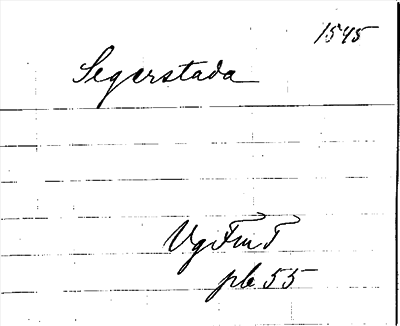 1545
Segerstada
Vg FmT
pb 55